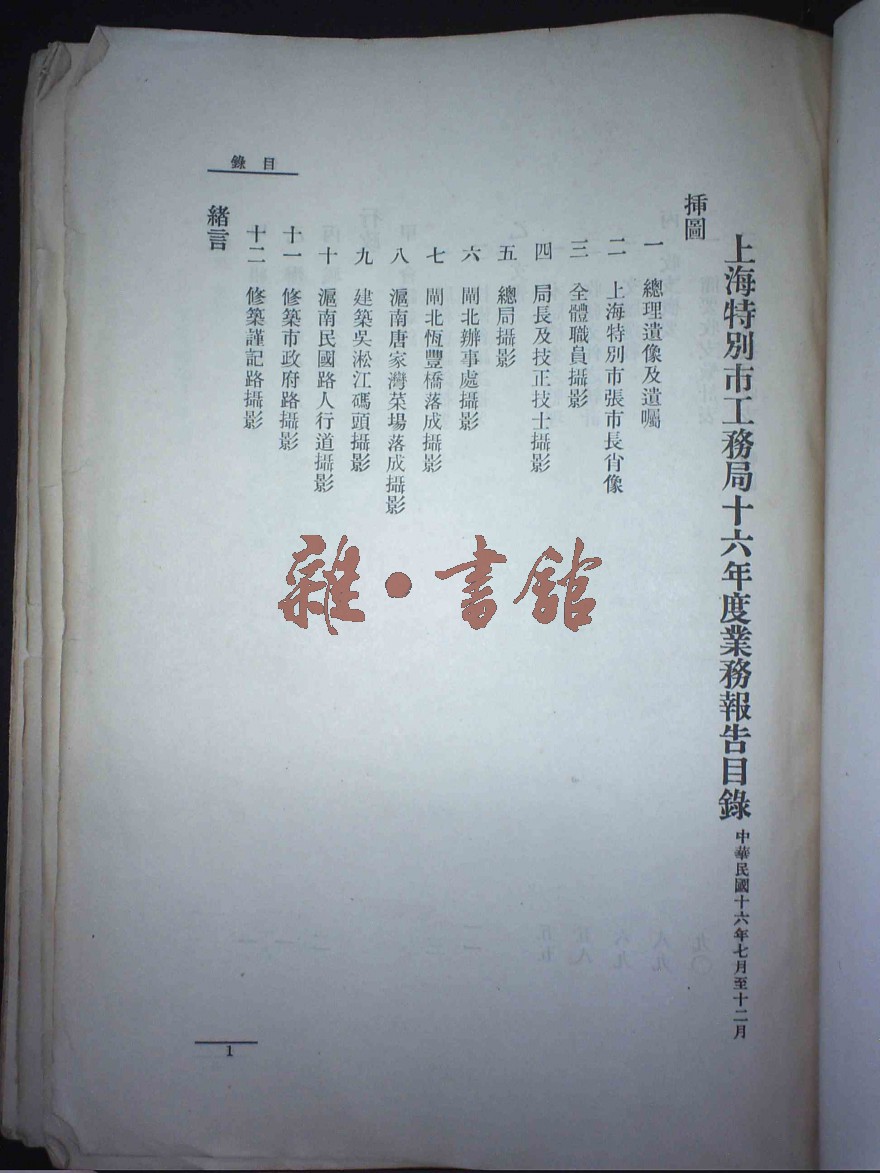 上海特別市工務局十六年度業務報告目錄 中華民國十六年七月至十二月
插圖
一 總理遺像及遺囑
二 上海特別市張市長肖像
三 全體職員攝影
四 局長及技正技士攝影
五 總局攝影
六 閘北辦事處攝影
七 閘北恆豐橋落成攝影
八 滬南唐家灣菜場落成攝影
九 建築吳淞江碼頭攝影
十 滬南民國路人行道攝影
十一 修築市政府路攝影
十二 修築謹記路攝影
緒言
目錄
1
雜·書館